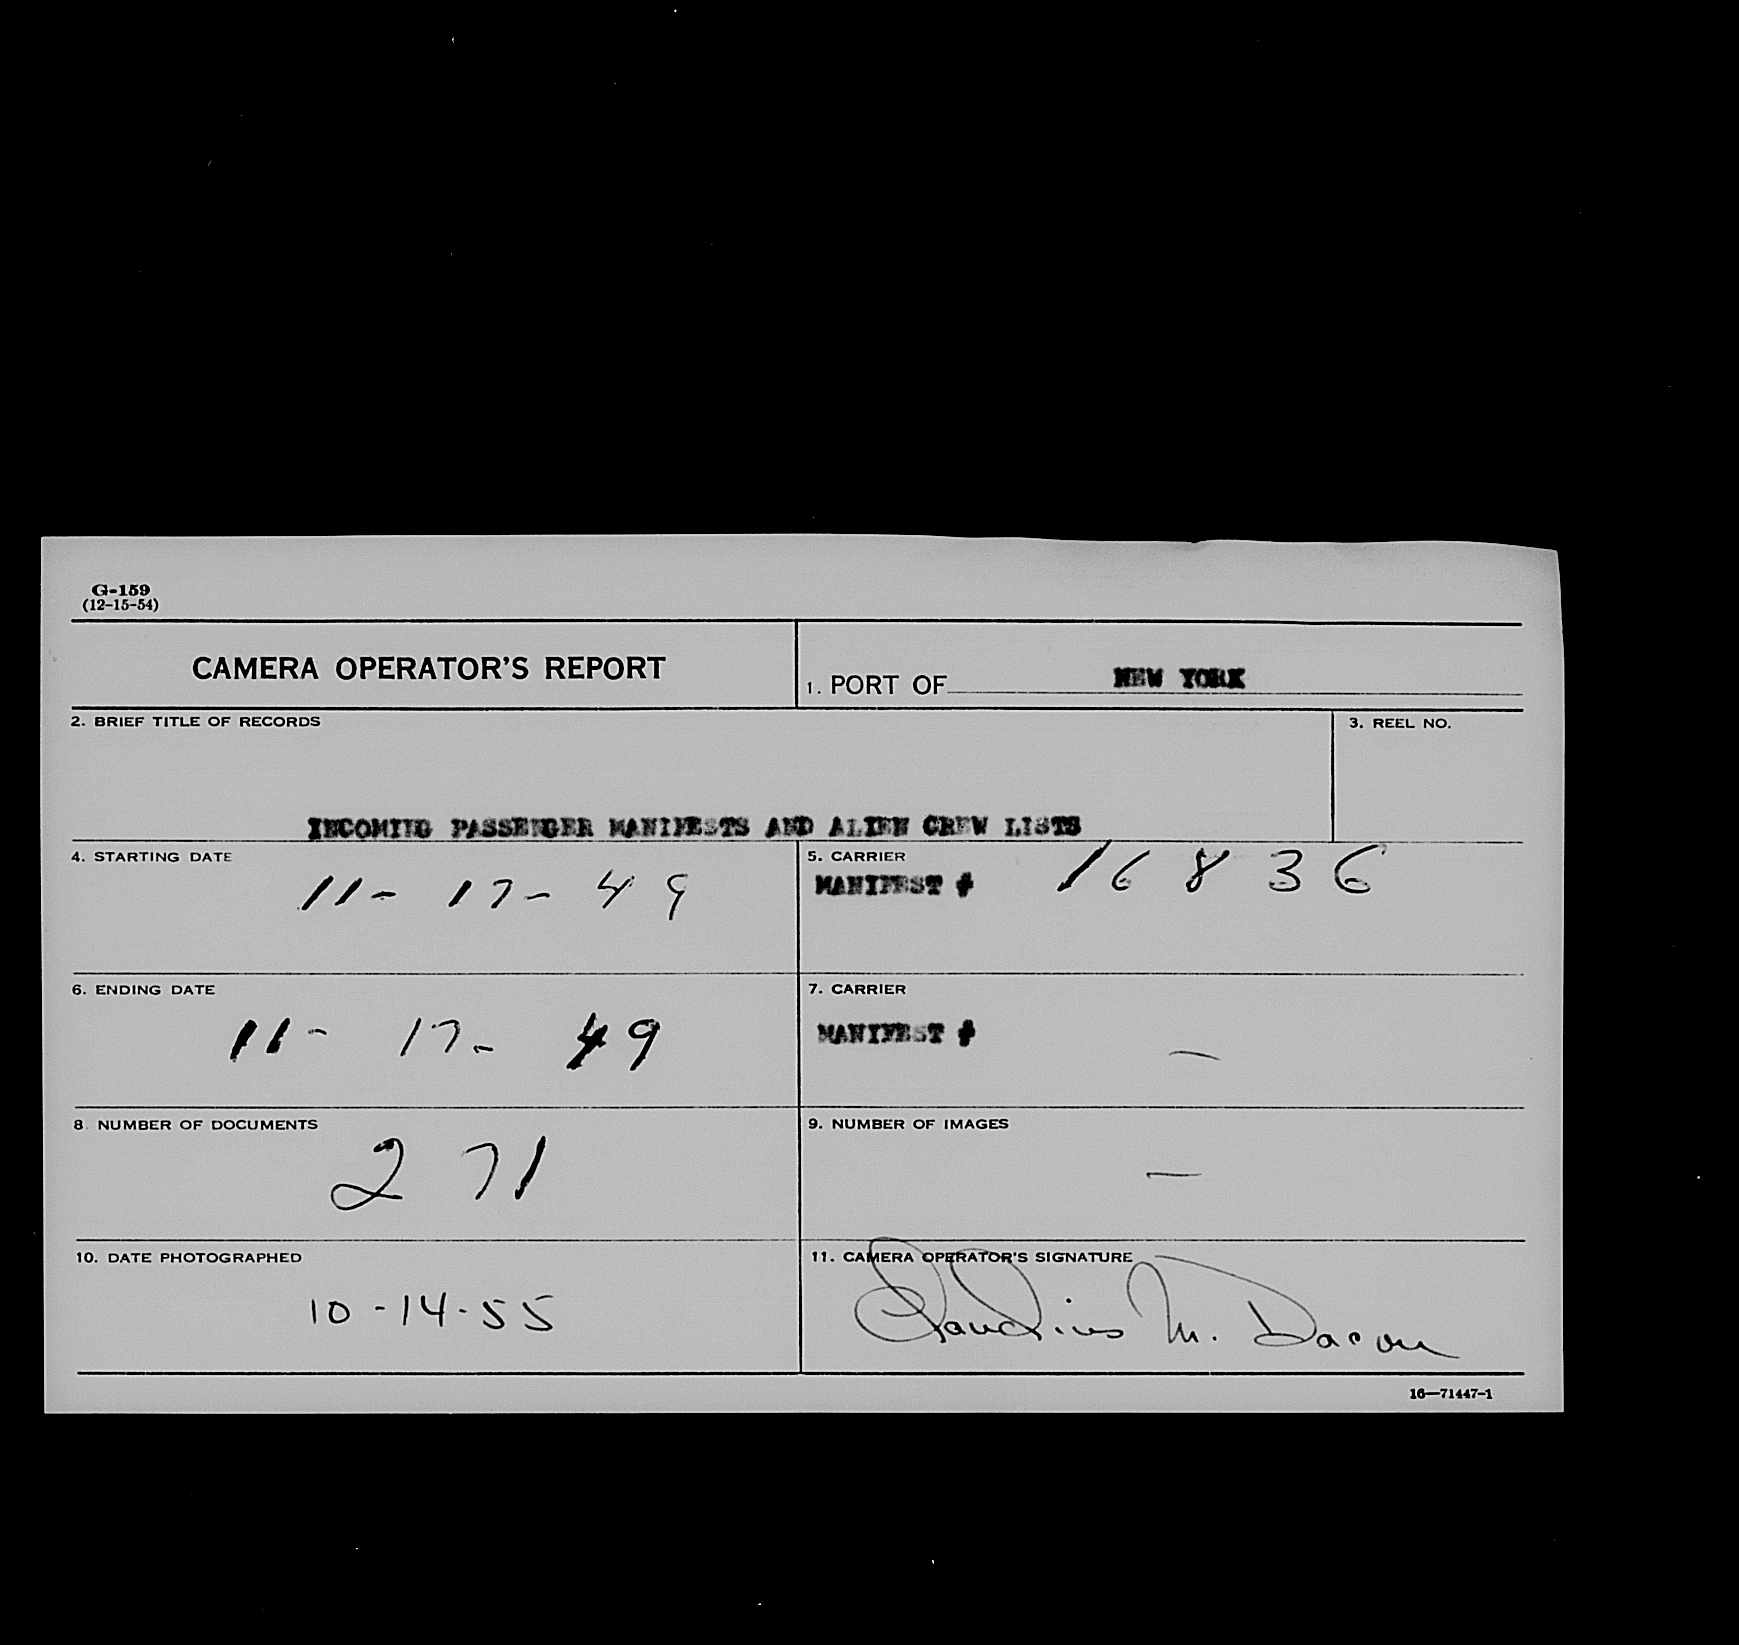 G-159
(12-15-54)
CAMERA OPERATOR'S REPORT
1. PORT OF NEW YORK
2. BRIEF TITLE OF RECORDS
3. REEL NO.
INCOMING PASSENGER MANIFESTS AND ALIEN CREW LISTS
4. STARTING DATE
11-17-49
5. CARRIER
MANIFEST # 16836
6. ENDING DATE
11-17-49
7. CARRIER
MANIFEST # —
8. NUMBER OF DOCUMENTS
271
9. NUMBER OF IMAGES
—
10. DATE PHOTOGRAPHED
10-14-55
11. CAMERA OPERATOR'S SIGNATURE
Claudius M. Dacon
16—71447-1